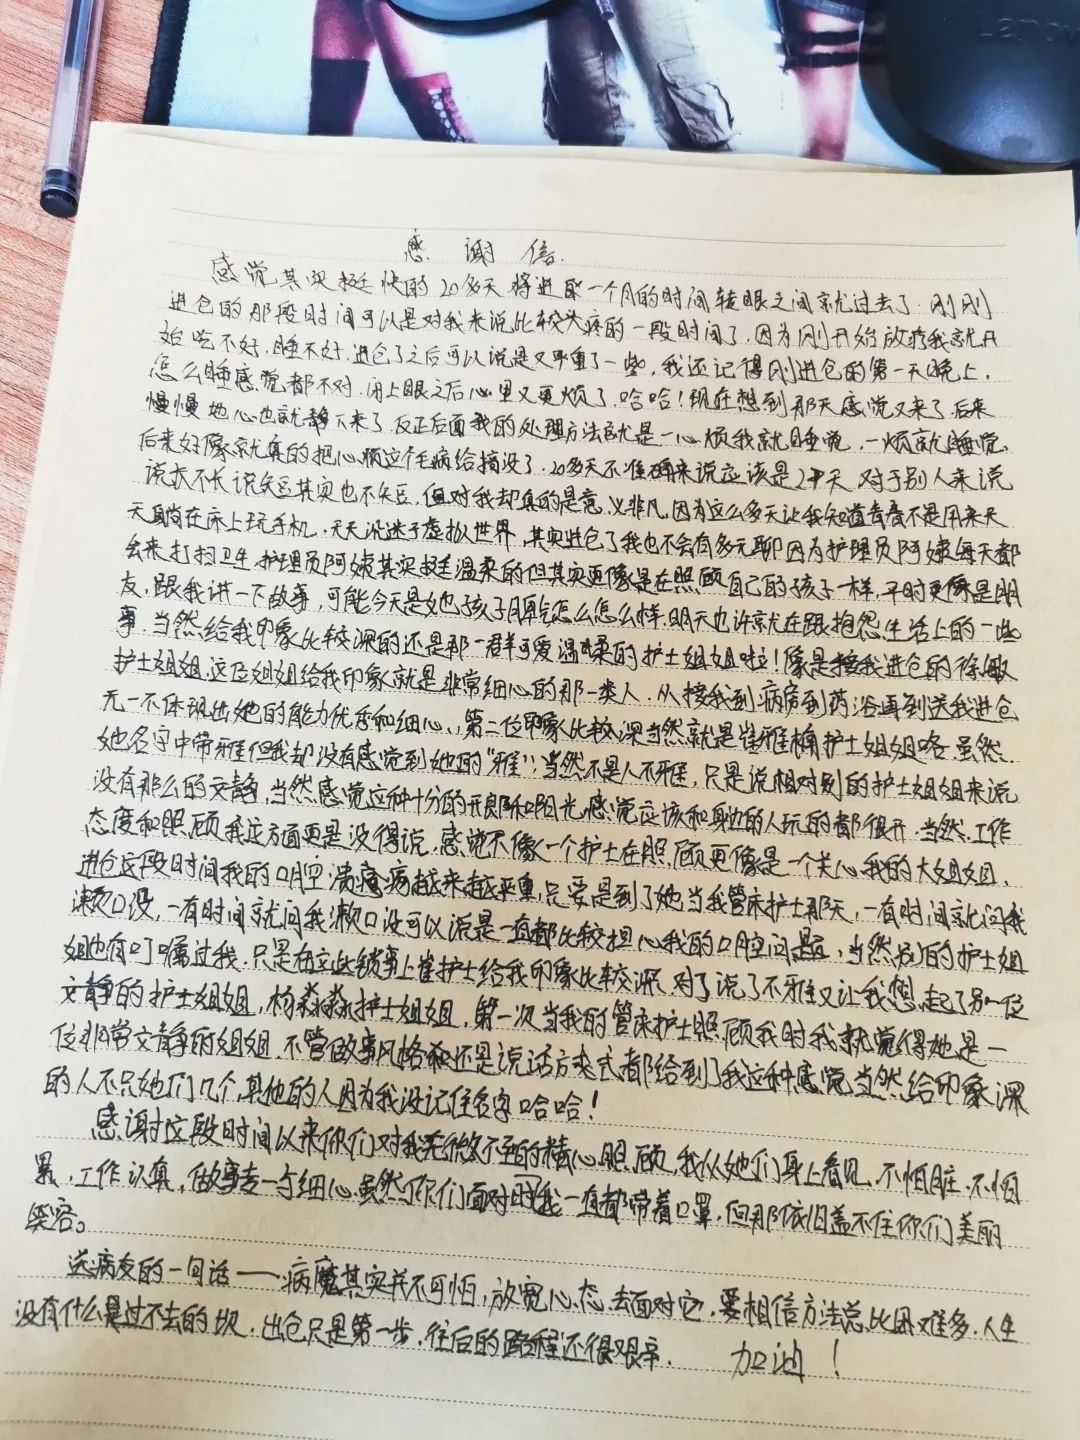 Lenovo
感谢信
感觉其实挺快的20多天将进度一个月的时间转眼之间就过去了.刚刚
进仓的那段时间可以是对我来说比较头疼的一段时间了,因为刚开始放疗我就开
始吃不好,睡不好,进仓了之后可以说是又严重了一些,我还记得刚进仓的第一天晚上,
怎么睡感觉都不对,闭上眼之后心里又更烦了,哈哈!现在想到那天感觉又来了,后来
慢慢地心也就静下来了,反正后面我的处理方法就是一心烦我就睡觉,一烦就睡觉,
后来好像就真的把心烦这个毛病给搞没了.20多天不准确来说应该是27天,对于别人来说
说长不长说短其实也不短,但对我却真的是意义非凡,因为这么多天让我知道青春不是用来天
天躺在床上玩手机,天天沉迷于虚拟世界,其实进仓了我也不会有多无聊因为护理员阿姨每天都
会来打扫卫生,护理员阿姨其实挺温柔的但其实更像是在照顾自己的孩子一样,平时更像是朋
友,跟我讲一下故事,可能今天是她孩子胖怎么怎么样,明天也许就在跟抱怨生活上的一些
事.当然给我印象比较深的还是那一群可爱温柔的护士姐姐啦!像是接我进仓的徐敏
护士姐姐,这位姐姐给我印象就是非常细心的那一类人,从接我到病房到药浴再到送我进仓
无一不体现出她的能力优秀和细心,,第二位印象比较深当然就是崔雅楠护士姐姐咯,虽然
她名字中带雅但我却没有感觉到她的“雅”,当然不是人不雅,只是说相对别的护士姐姐来说
没有那么的文静,当然感觉这种十分的开朗和阳光,感觉应该和身边的人玩的都很开,当然,工作
态度和照顾我这方面更是没得说,感觉不像一个护士在照顾更像是一个关心我的大姐姐,
进仓这段时间我的口腔溃疡病越来越严重,只要是到了她当我管床护士那天,一有时间就问我
漱口没,一有时间就问我漱口没可以说是一直都比较担心我的口腔问题,当然别的护士姐
姐也有叮嘱过我,只是在这些琐事上崔护士给我印象比较深,对了说了不雅又让我想起了另一位
文静的护士姐姐,杨淼淼护士姐姐,第一次当我的管床护士照顾我时我就觉得她是一
位非常文静的姐姐,不管做事风格和还是说话方式都给到了我这种感觉,当然给印象深
的人不只她们几个,其他的人因为我没记住名字哈哈!
感谢这段时间以来你们对我无微不至的精心照顾,我从她们身上看见,不怕脏,不怕
累,工作认真,做事专一与细心,虽然你们面对时我一直都带着口罩,但那依旧盖不住你们美丽
笑容。
送病友的一句话——病魔其实并不可怕,放宽心态,去面对它,要相信方法总比困难多,人生
没有什么是过不去的坎,出仓只是第一步,往后的路程还很艰辛, 加油!